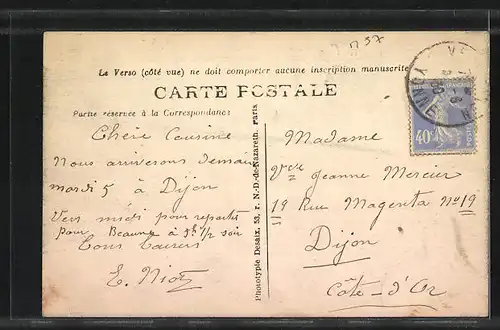 Le Verso (côté vue) ne doit comporter aucune inscription manuscrite
CARTE POSTALE
Partie réservée à la Correspondance
Chère Cousine
Nous arriverons demain
mardi 5 à Dijon
Vers midi pour repartir
pour Beaune à 5h 1/2 soir
Bons baisers
E. Niot
Phototypie Desaix, 53, r. N.-D.-de-Nazareth, Paris
Madame
Vve Jeanne Mercier
19 Rue Magenta No 19
Dijon
Côte-d'Or
40c